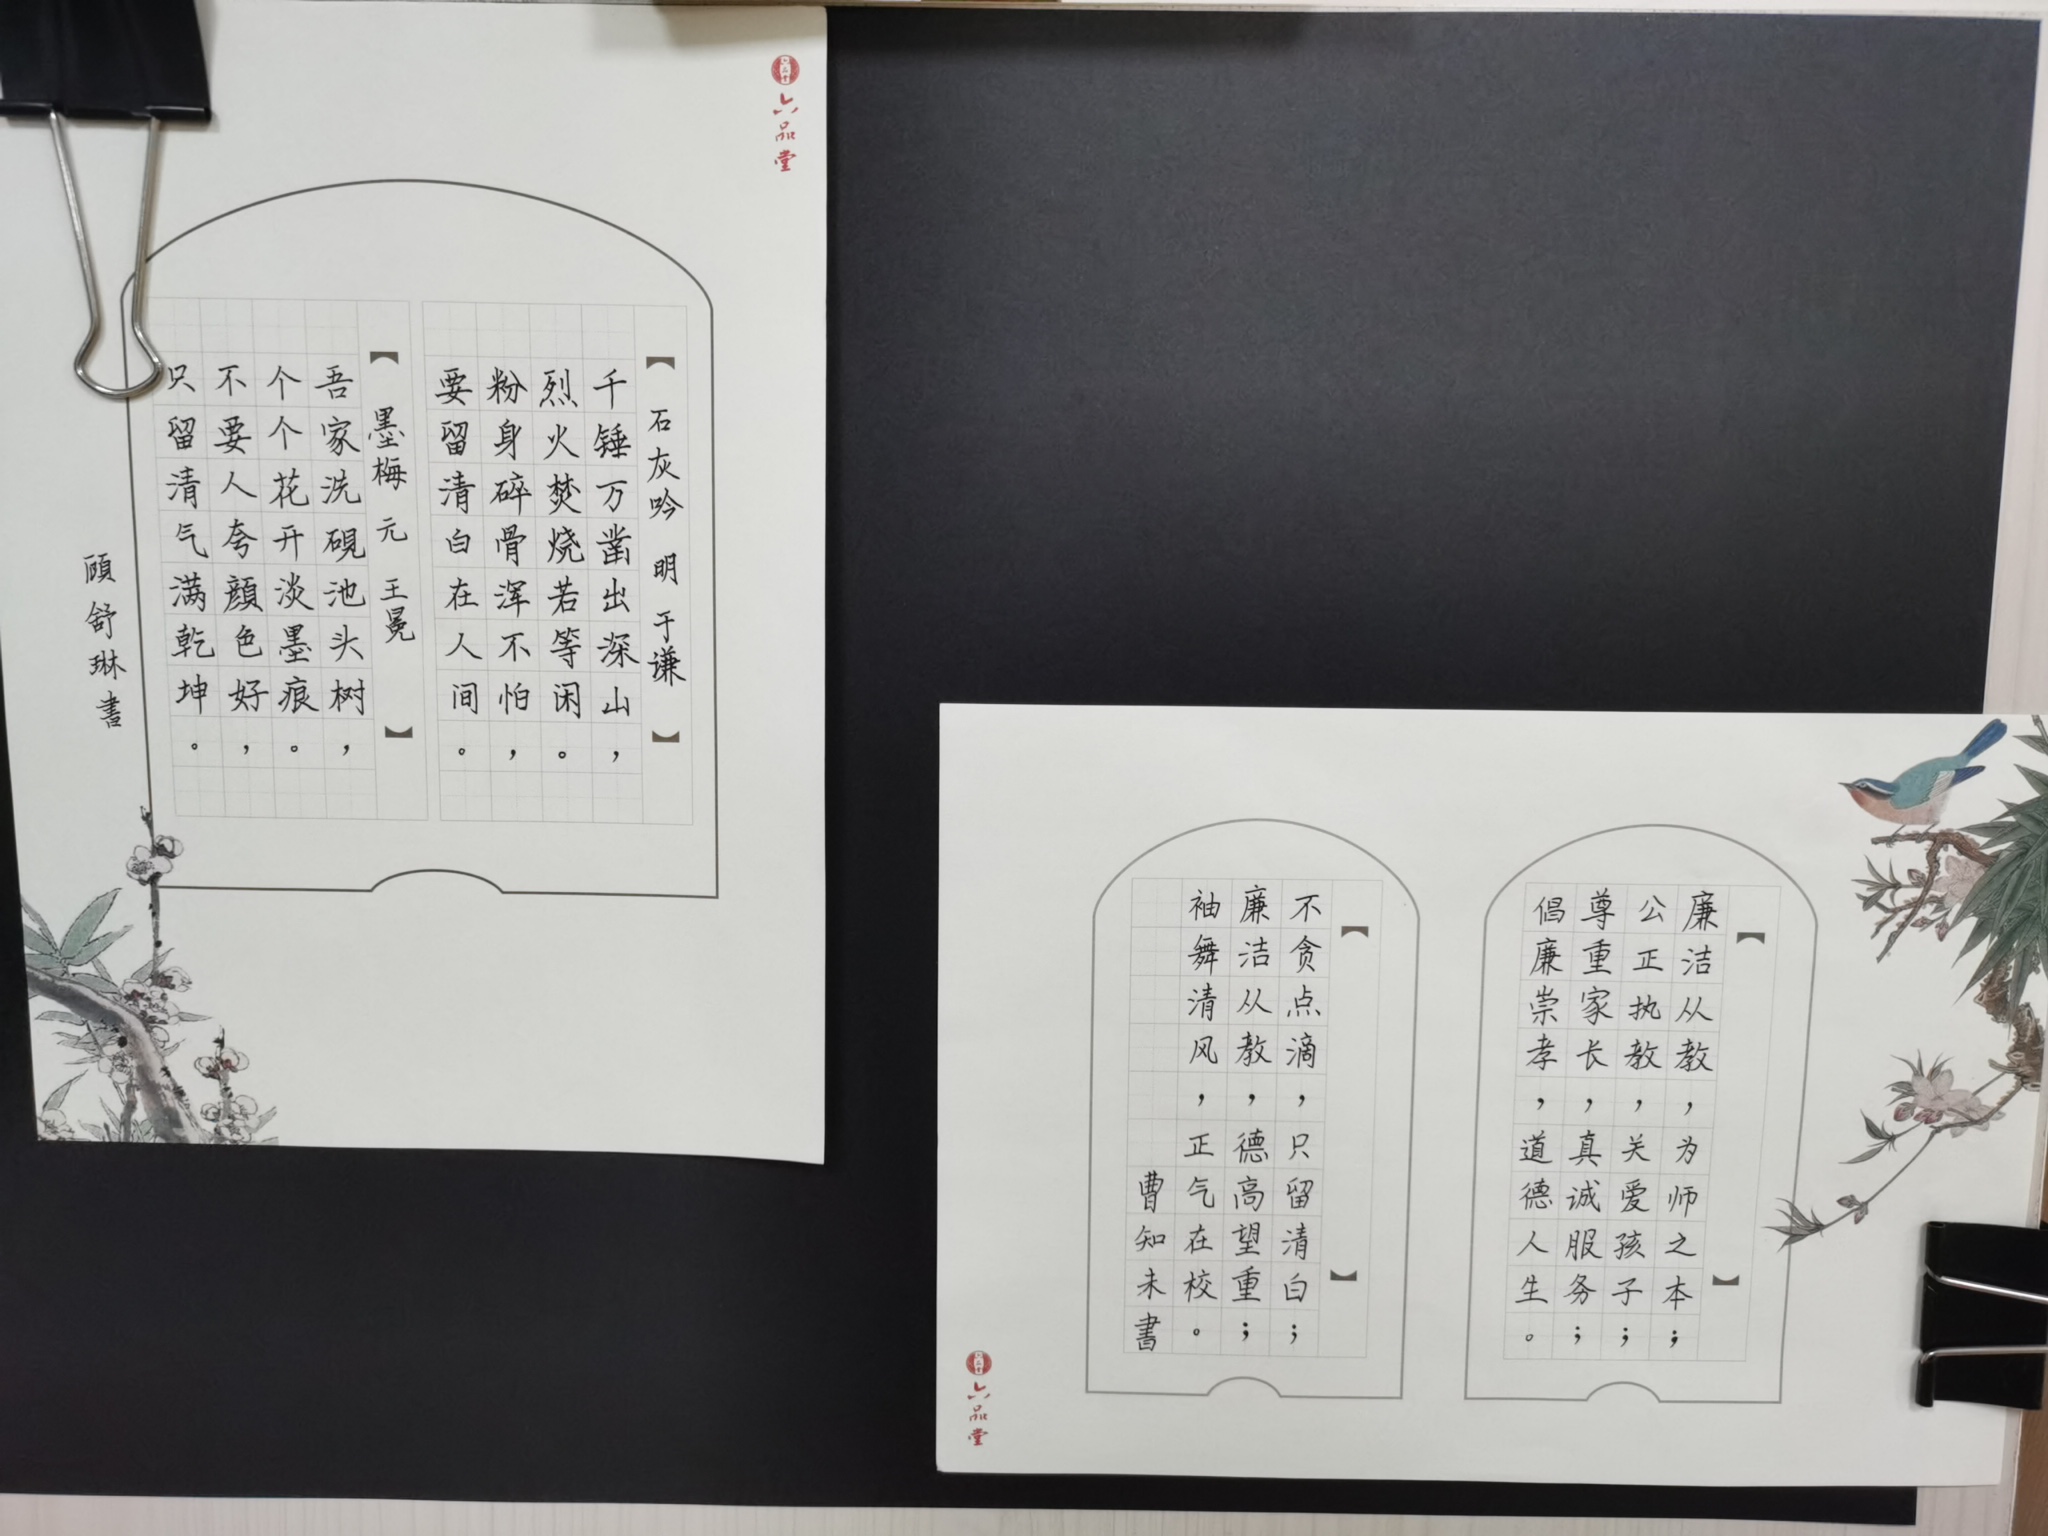 六品堂
石灰吟 明 于谦
千锤万凿出深山，
烈火焚烧若等闲。
粉身碎骨浑不怕，
要留清白在人间。
墨梅 元 王冕
吾家洗砚池头树，
个个花开淡墨痕。
不要人夸颜色好，
只留清气满乾坤。
顾舒琳書
廉洁从教，为师之本；
公正执教，关爱孩子；
尊重家长，真诚服务；
倡廉崇孝，道德人生。
不贪点滴，只留清白；
廉洁从教，德高望重；
袖舞清风，正气在校。
曹知未書
六品堂